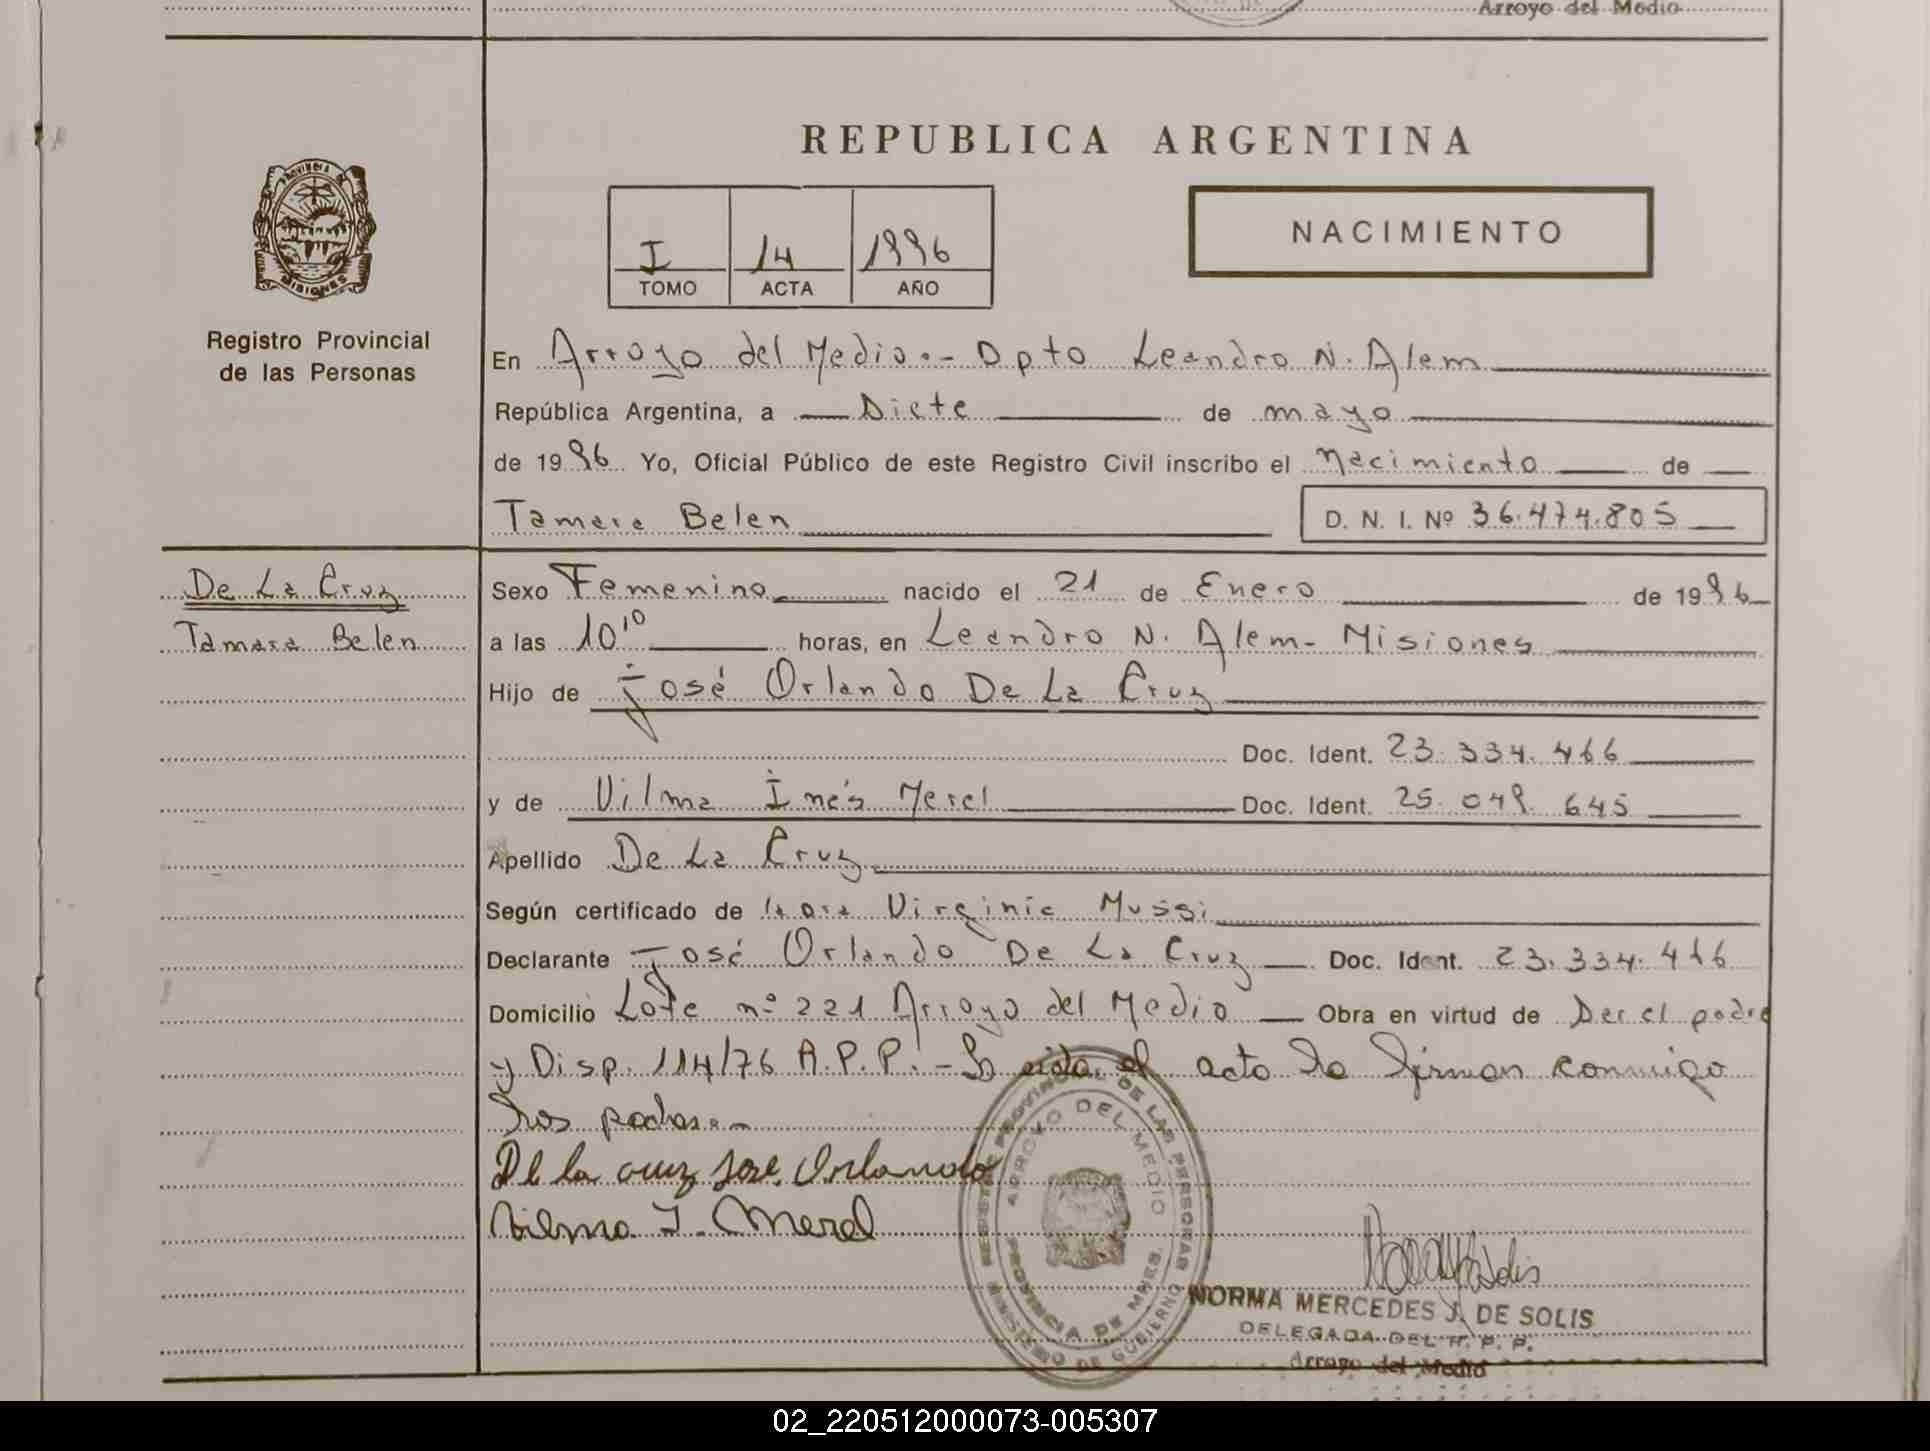 Arroyo del Medio
REPUBLICA ARGENTINA
PROVINCIA DE
MISIONES
Registro Provincial
de las Personas
I 14 1996
TOMO ACTA AÑO
NACIMIENTO
En Arroyo del Medio.- Dpto Leandro N. Alem
República Argentina, a Siete de mayo
de 1996 Yo, Oficial Público de este Registro Civil inscribo el Nacimiento de
Tamara Belen D. N. I. Nº 36.474.805
De La Cruz
Tamara Belen
Sexo Femenino nacido el 21 de Enero de 1996
a las 10 10 horas, en Leandro N. Alem - Misiones
Hijo de José Orlando De La Cruz
Doc. Ident. 23.334.466
y de Vilma Inés Merel Doc. Ident. 25.049.645
Apellido De La Cruz
Según certificado de Virginia Mussi
Declarante José Orlando De La Cruz Doc. Ident. 23.334.466
Domicilio Lote nº 221 Arroyo del Medio Obra en virtud de Ser el padre
y Disp. 114/76 A.P.P.- el acto la firman conmigo
los padres.-
De la cruz José Orlando
Vilma I. Merel
REGISTRO PROVINCIAL DE LAS PERSONAS
ARROYO DEL MEDIO
PROVINCIA DE MNES.
MINISTERIO DE GOBIERNO
NORMA MERCEDES J. DE SOLIS
DELEGADA DEL R. P. P.
Arroyo del Medio
02_220512000073-005307